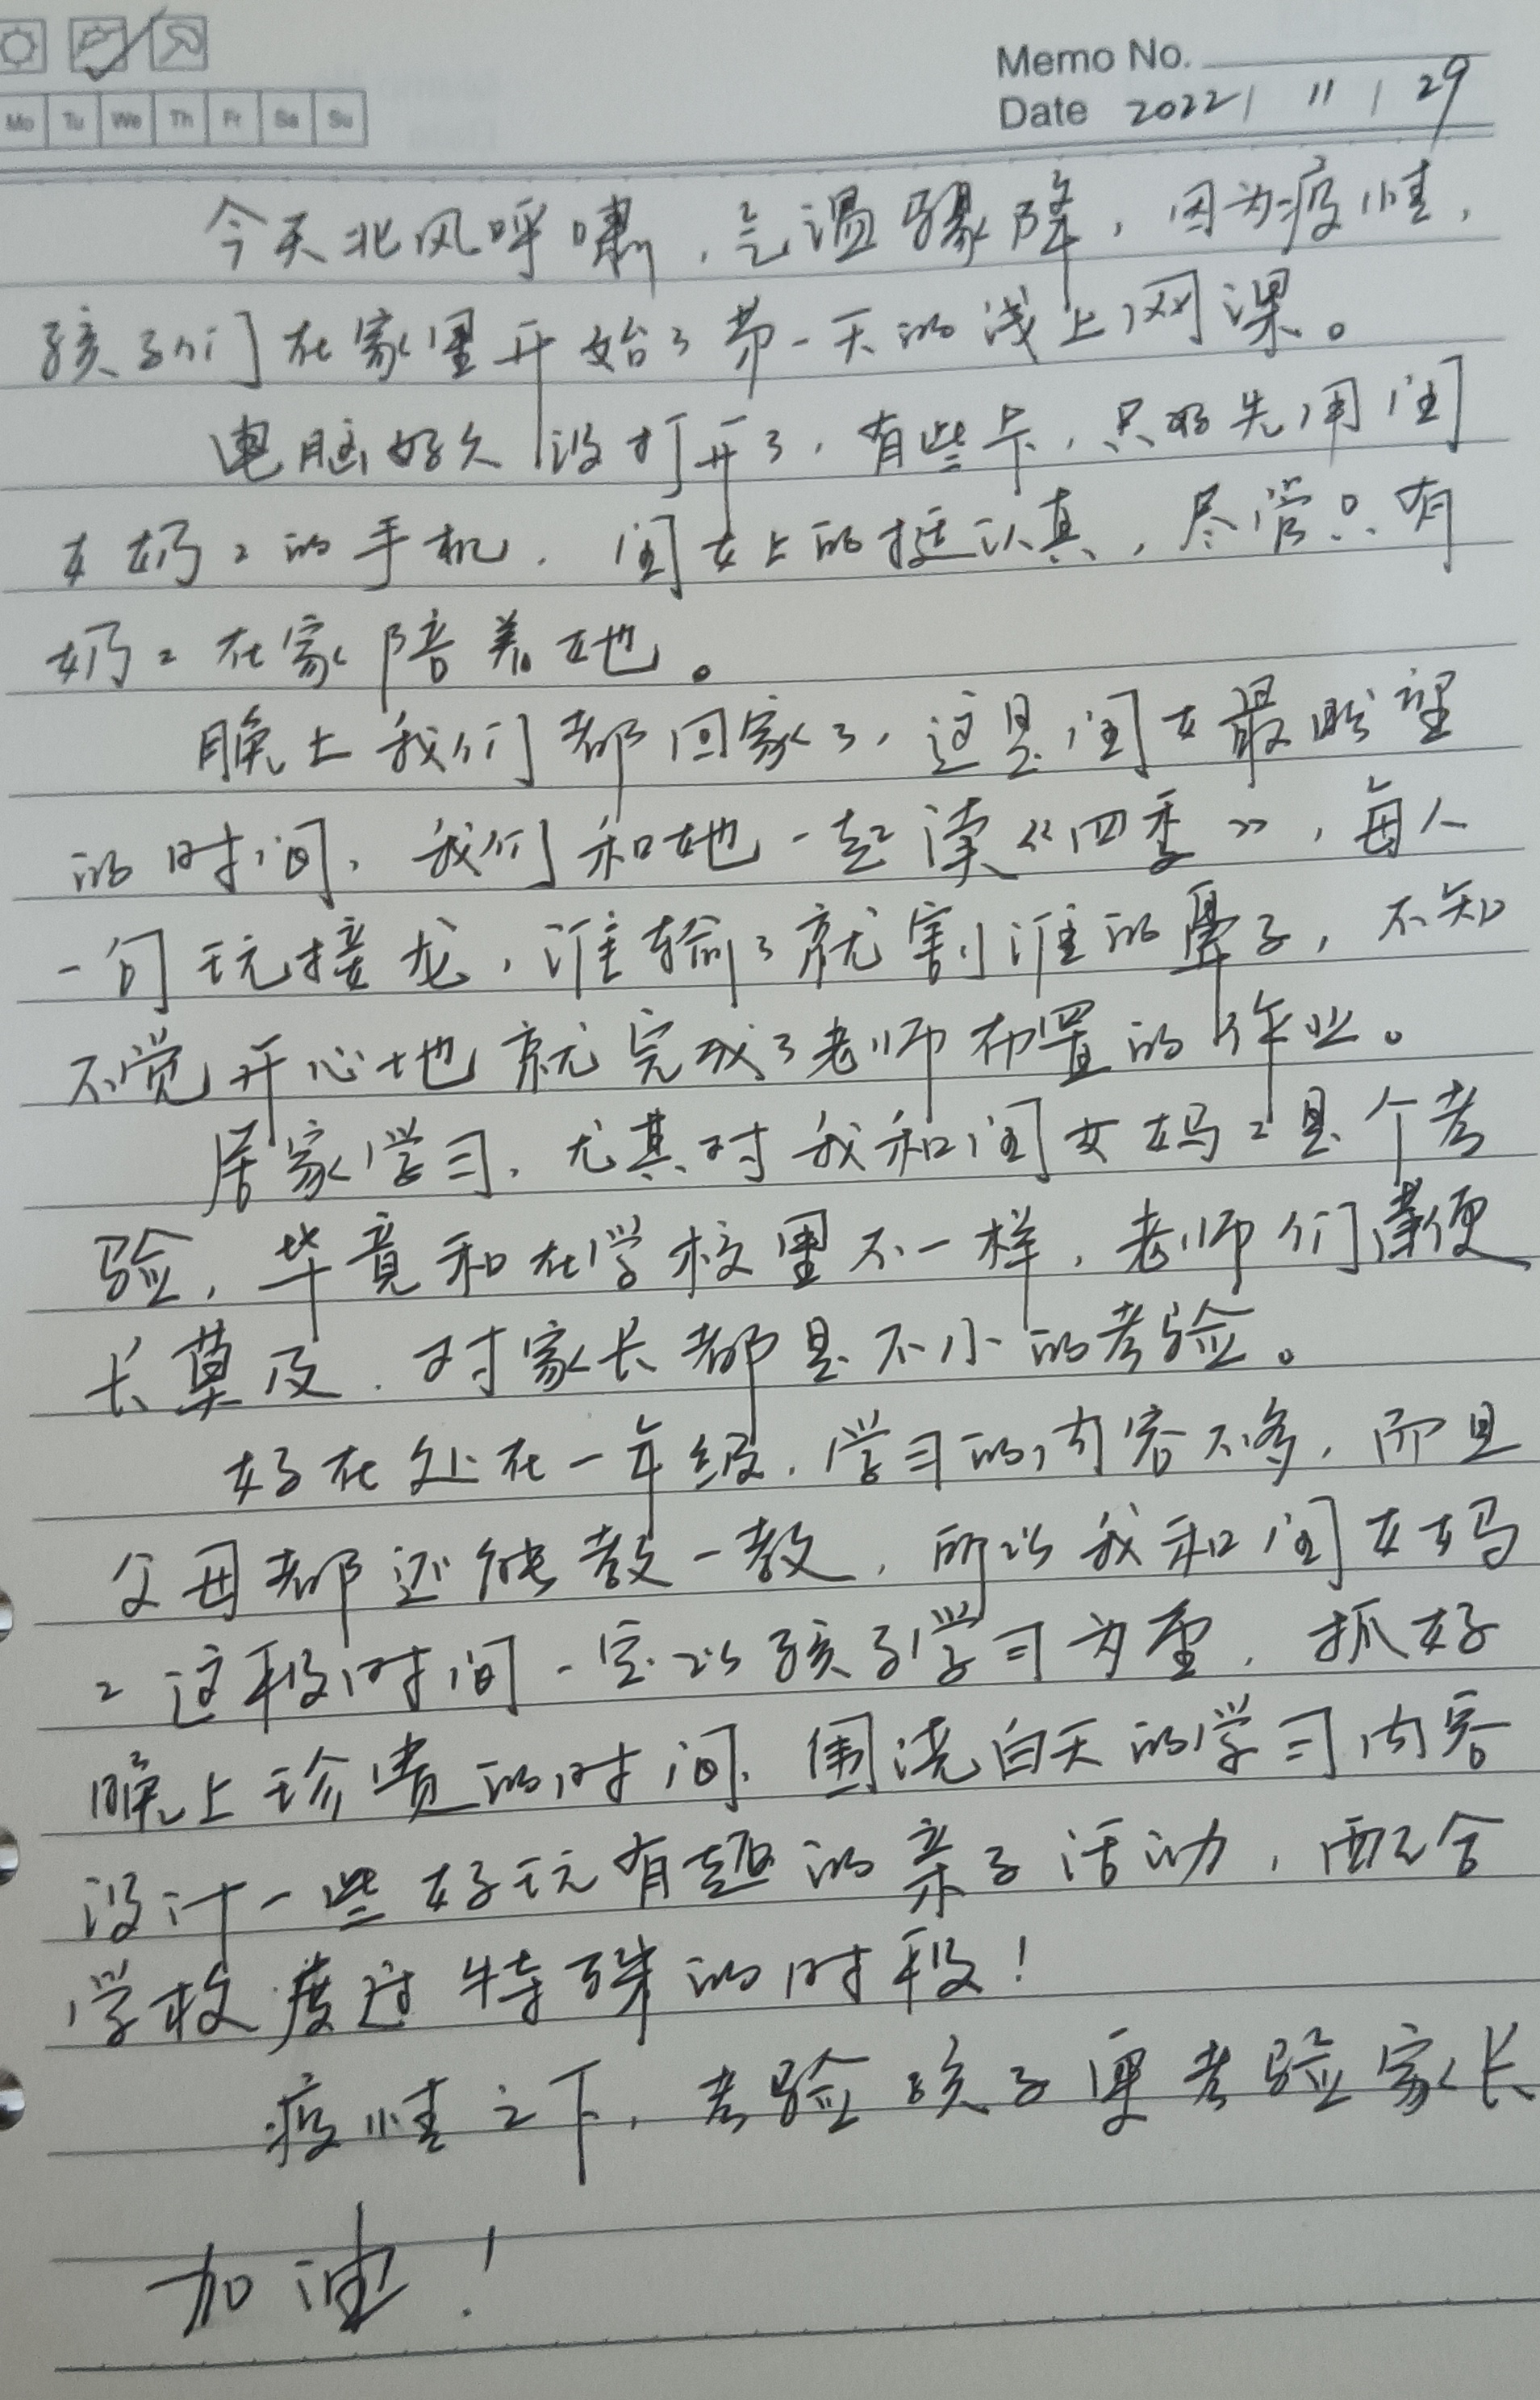 Memo No.
Mo Tu We Th Fr Sa Su
Date 2022 / 11 / 29
今天北风呼啸，气温骤降，因为疫情，
孩子们在家里开始了第一天的线上网课。
电脑好久没打开了，有些卡，只好先用闺
女奶々的手机．闺女上的挺认真，尽管只有
奶々在家陪着她。
晚上我们都回家了，这是闺女最盼望
的时间，我们和她一起读《四季》，每人
一句玩接龙，谁输了就割谁的鼻子，不知
不觉开心地就完成了老师布置的作业。
居家学习，尤其对我和闺女妈々是个考
验，毕竟和在学校里不一样，老师们鞭
长莫及．对家长都是不小的考验。
好在处在一年级，学习的内容不多，而且
父母都还能教一教，所以我和闺女妈
々这段时间一定以孩子学习为重，抓好
晚上珍贵的时间，围绕白天的学习内容
设计一些好玩有趣的亲子活动，配合
学校度过特殊的时段！
疫情之下，考验孩子更考验家长
加油！